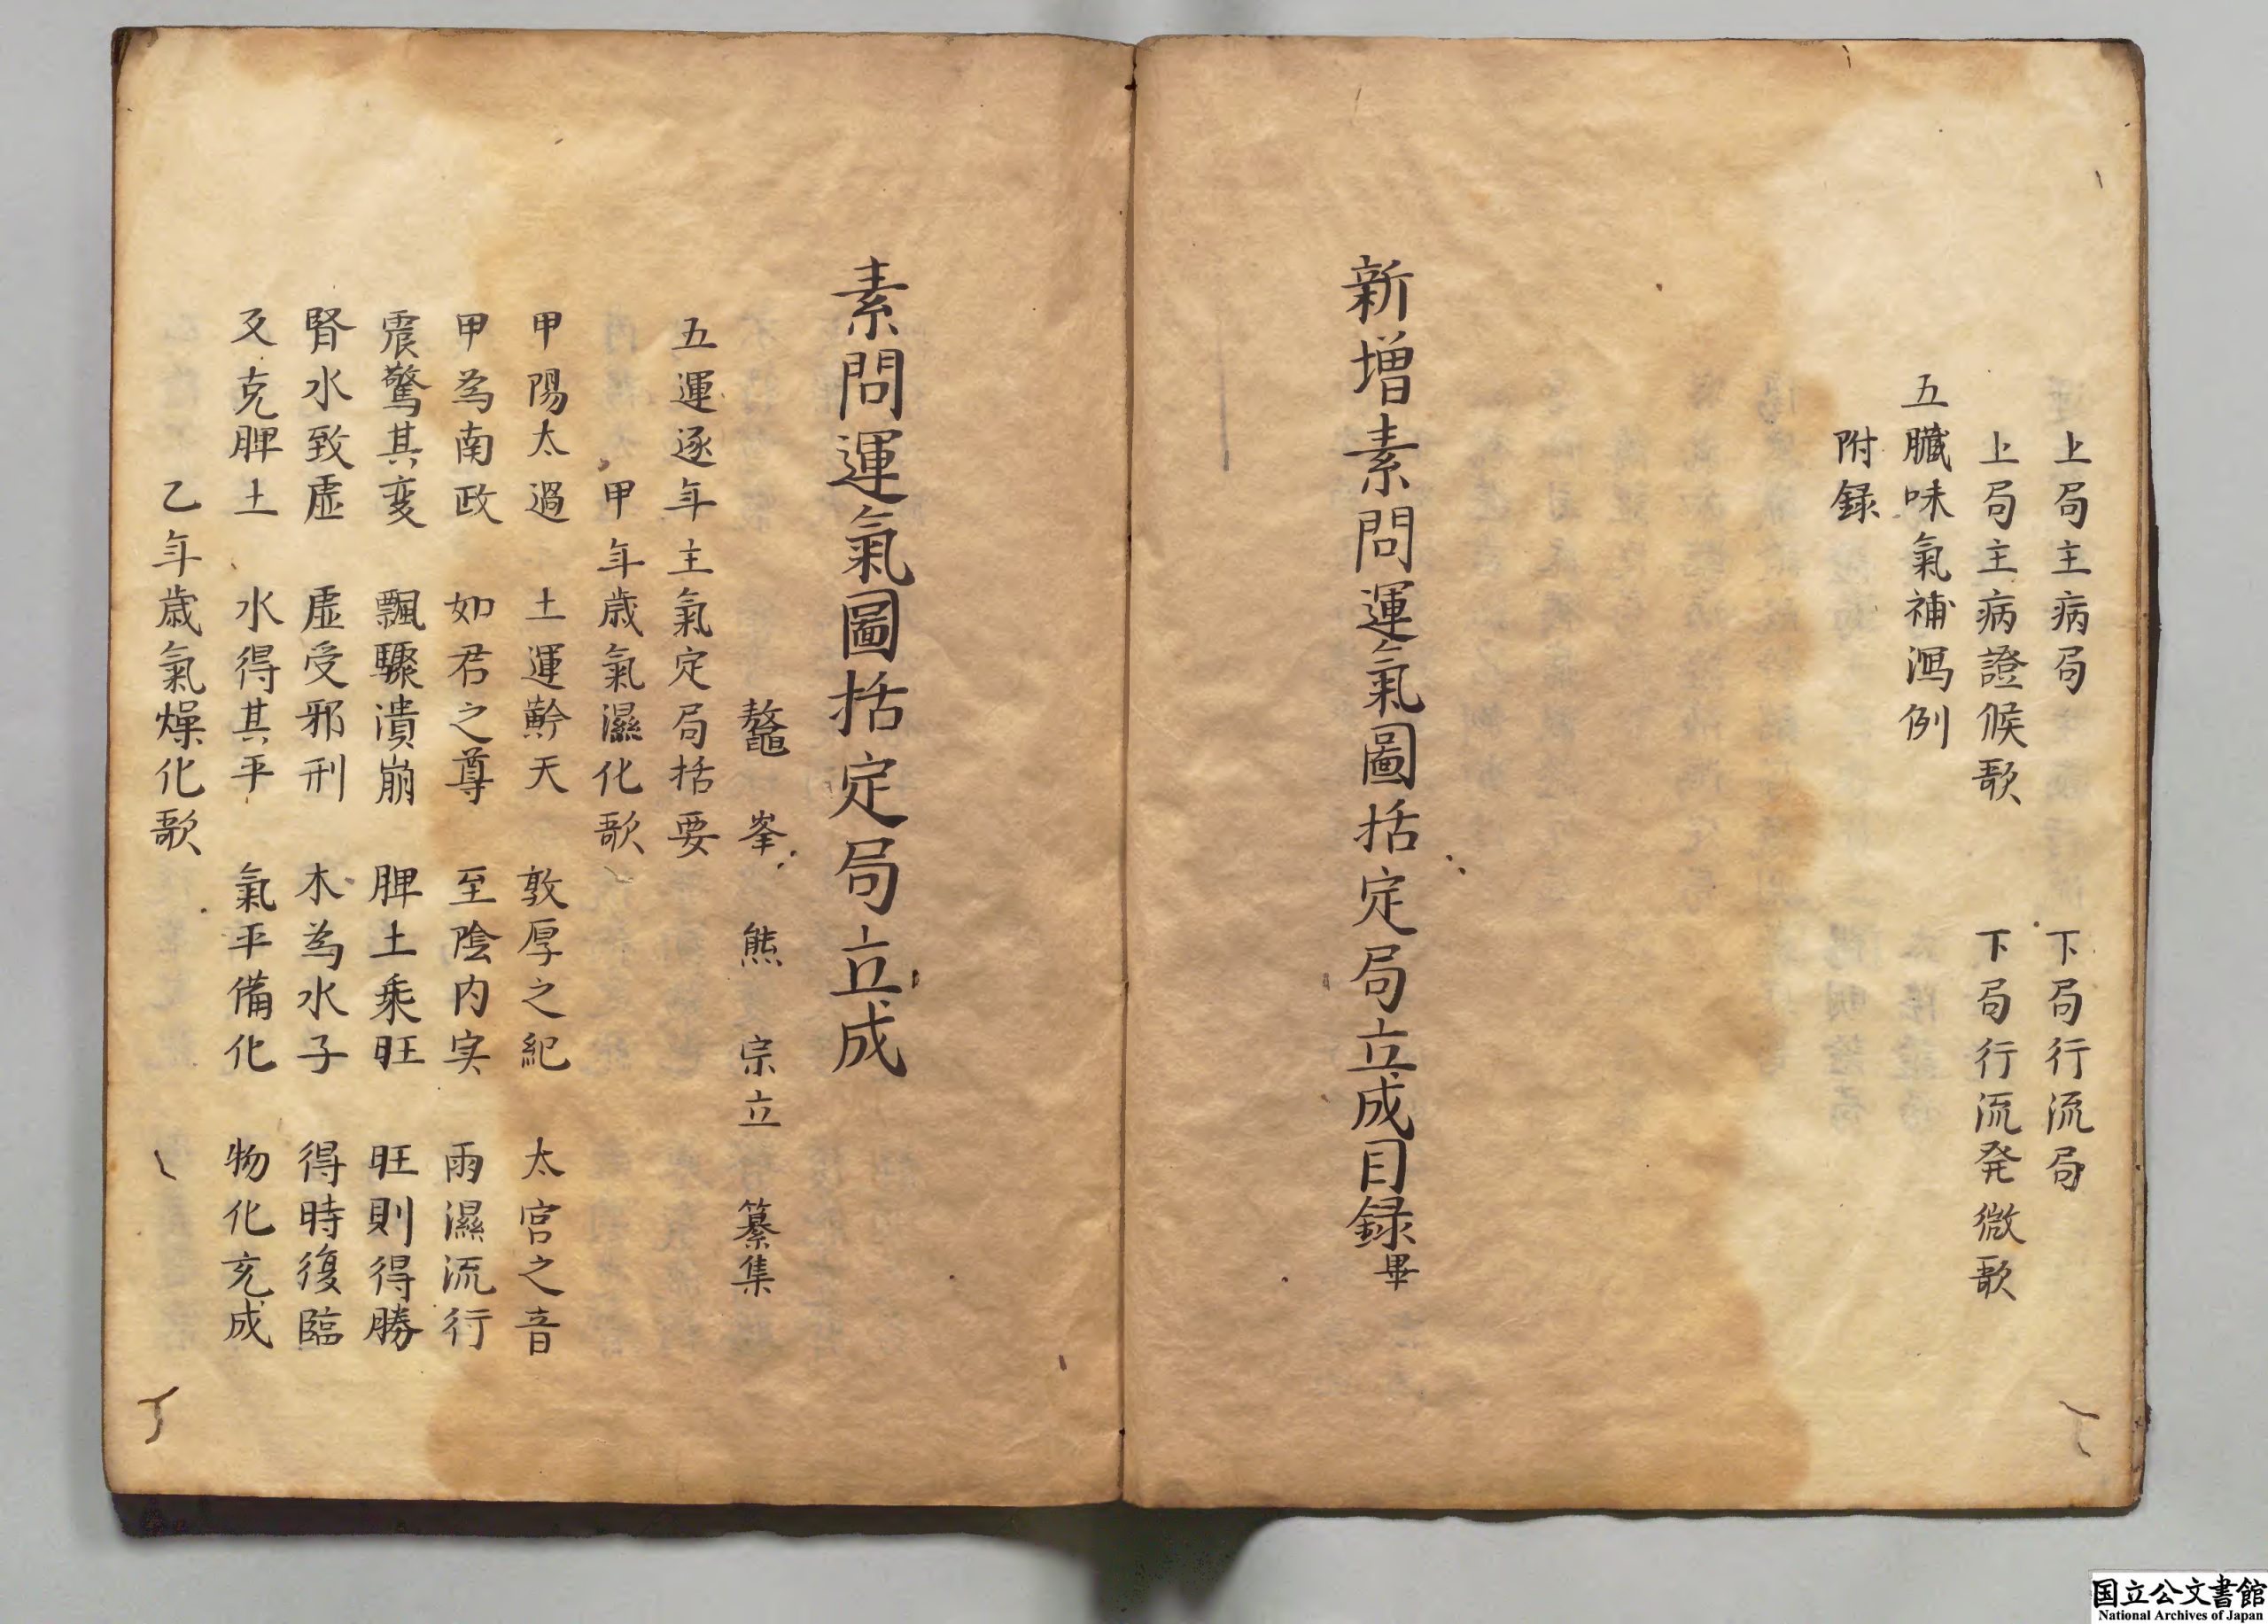 上局主病局　下局行流局
上局主病證候歌　下局行流発微歌
五臟味氣補瀉例
附録
新增素問運氣圖括定局立成目録畢
素問運氣圖括定局立成
鼇峯　熊　宗立　纂集
五運逐年主氣定局括要
甲年歳氣濕化歌
甲陽太過　土運黅天　敦厚之紀　太宮之音
甲為南政　如君之尊　至陰内実　雨濕流行
震驚其変　飄驟潰崩　脾土乘旺　旺則得勝
腎水致虛　虛受邪刑　木為水子　得時復臨
又克脾土　水得其平　氣平備化　物化充成
乙年歳氣燥化歌
国立公文書館
National Archives of Japan